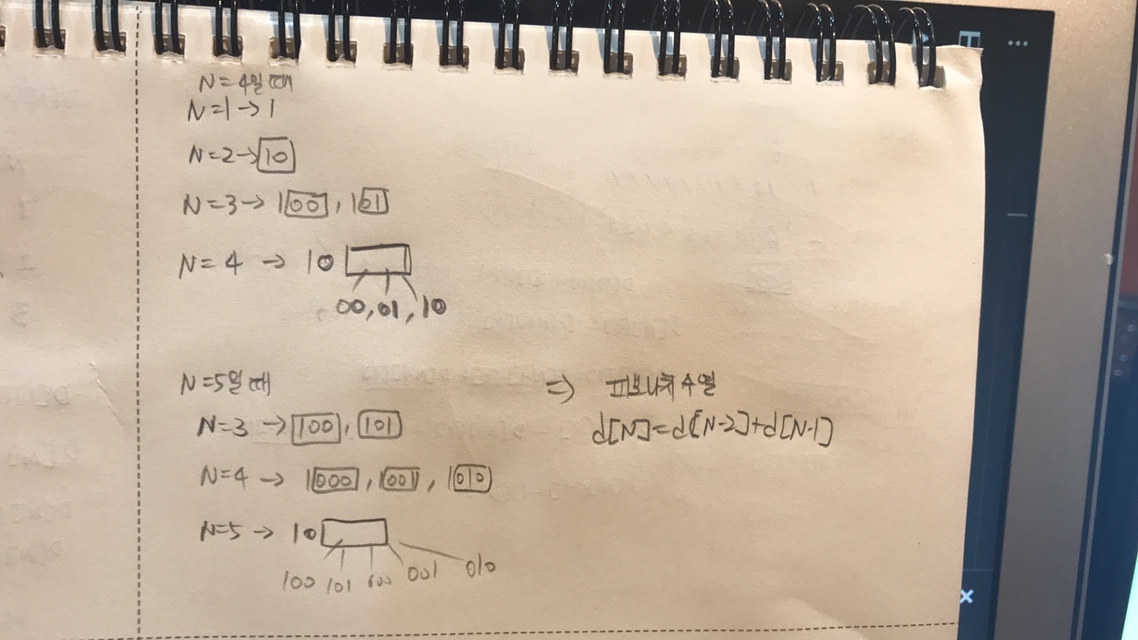 N=4일 때
N=1→1
N=2→10
N=3→100, 101
N=4 → 10
00, 01, 10
N=5일 때
N=3 →100, 101
N=4 → 1000, 1001, 1010
N=5 → 10
100 101 000 001 010
⇒ 피보나치 수열
d[N]=d[N-2]+d[N-1]